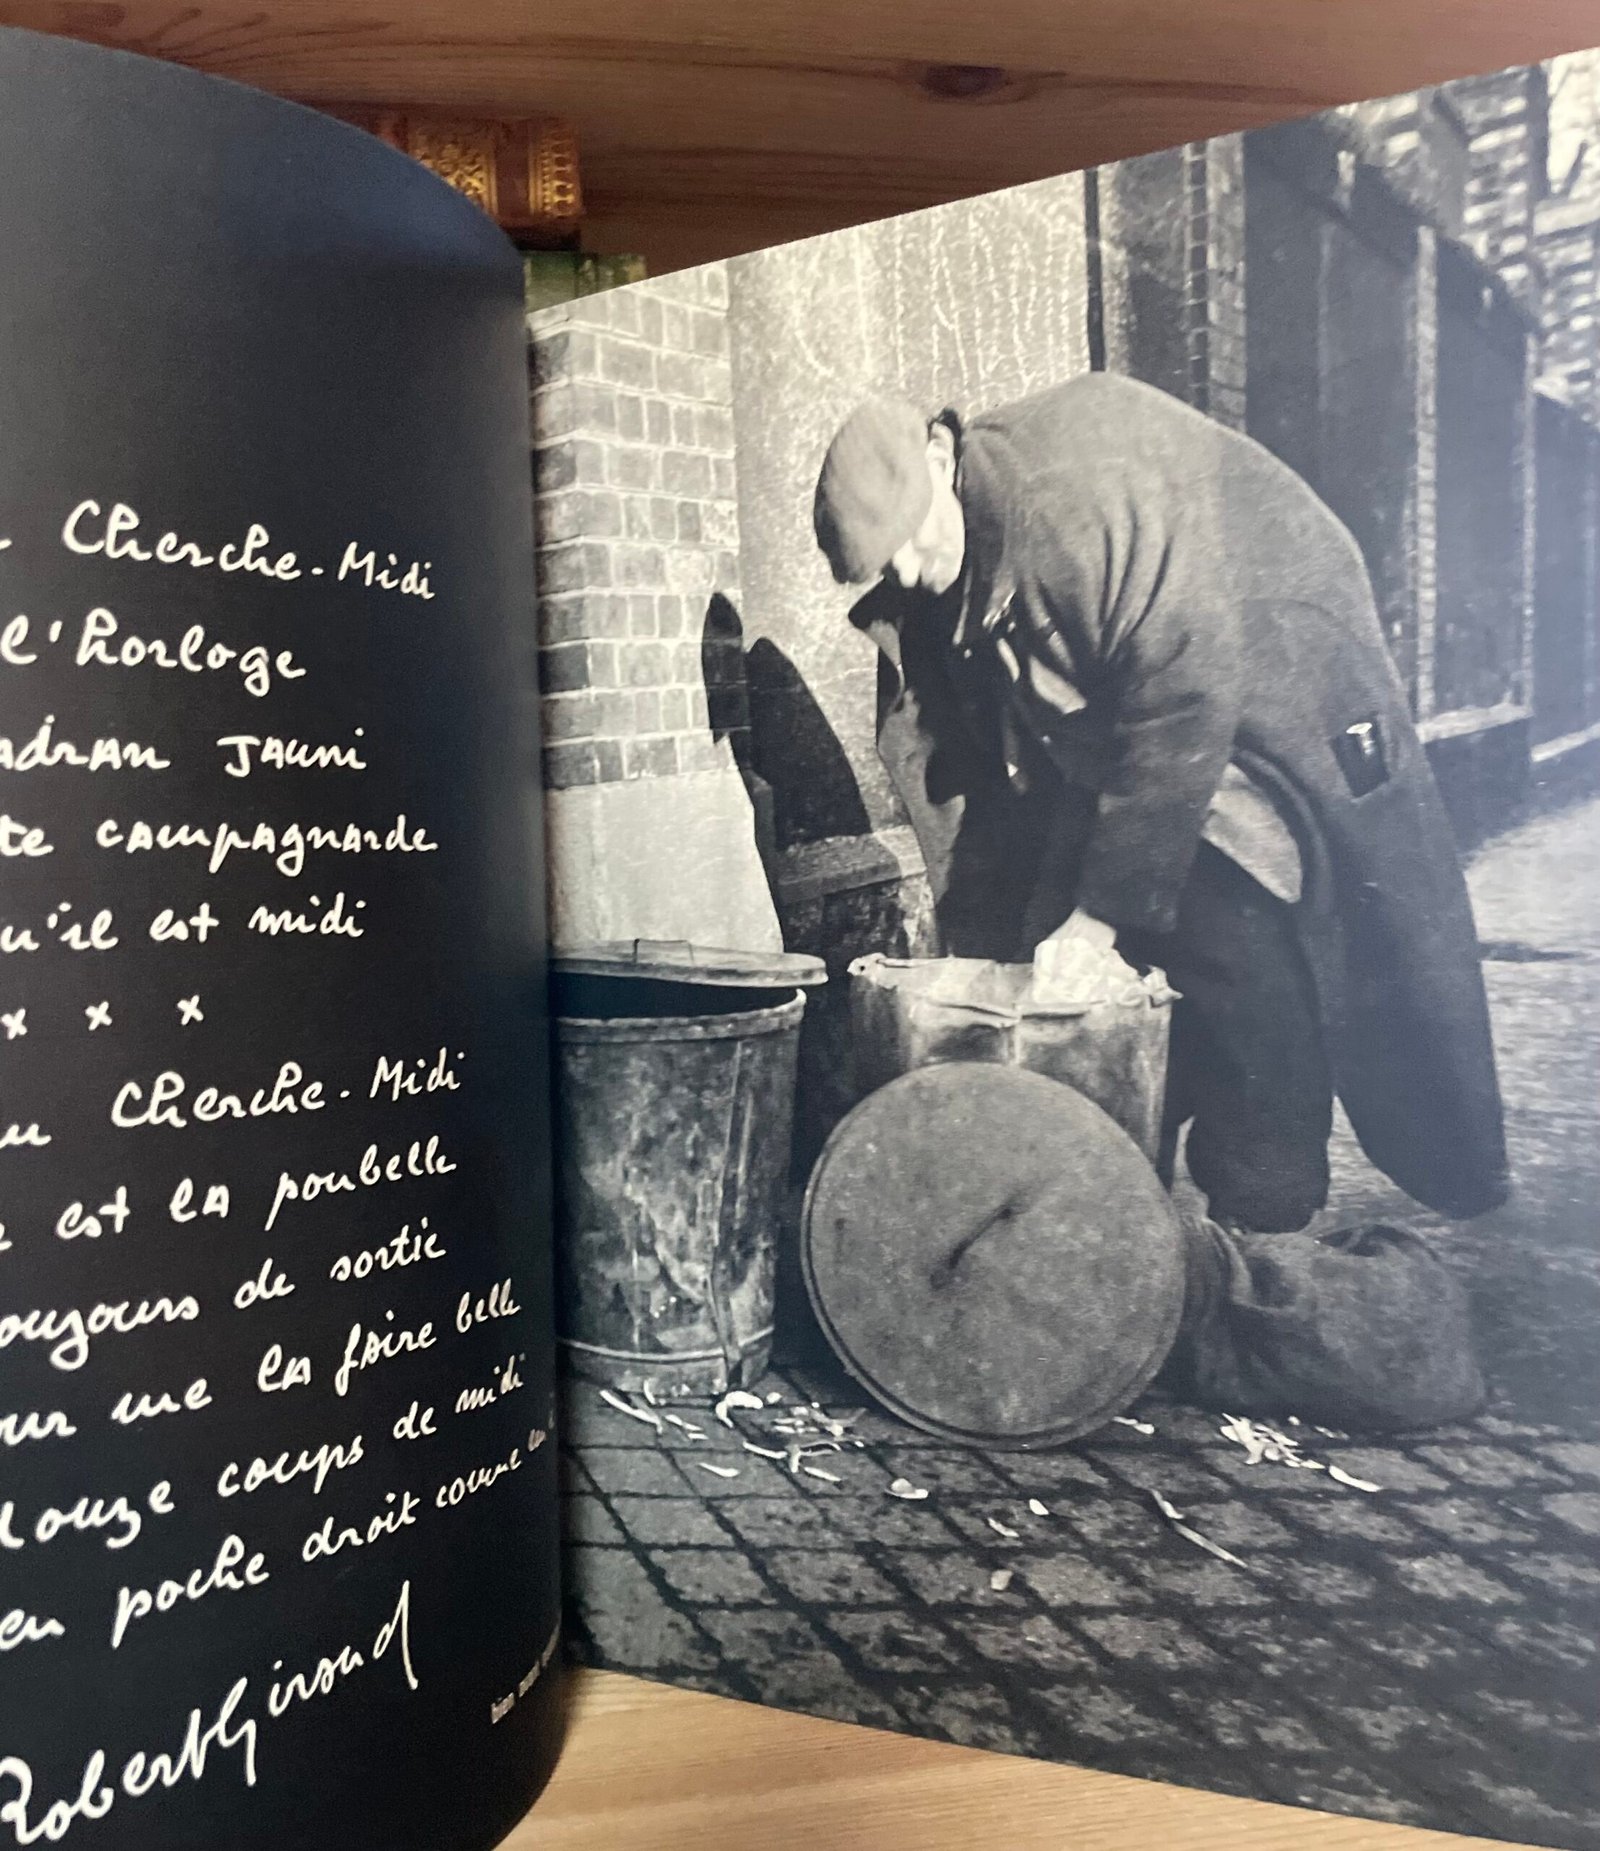 Cherche-Midi
l'horloge
adran jauni
te campagnarde
u'il est midi
x x x
u Cherche-Midi
est la poubelle
oujours de sortie
our me la faire belle
douze coups de midi
en poche droit comme un
Robert Giraud